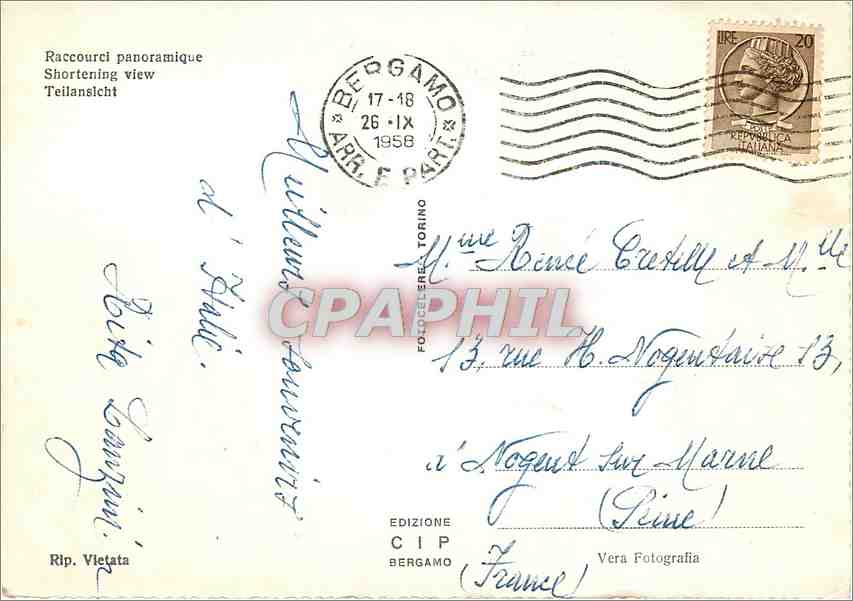 Raccourci panoramique
Shortening view
Teilansicht
BERGAMO
17-18
26 · IX
1958
ARR. E PART.
LIRE 20
REPVBBLICA
ITALIANA
Meilleurs souvenirs
d'Italie.
Rita
FOTOCELERE TORINO
Mme Renée et Mlle
13, rue H. Nogentaise 13,
à Nogent sur Marne
(Seine)
(France)
EDIZIONE
CIP
BERGAMO
Rip. Vietata
Vera Fotografia
CPAPHIL